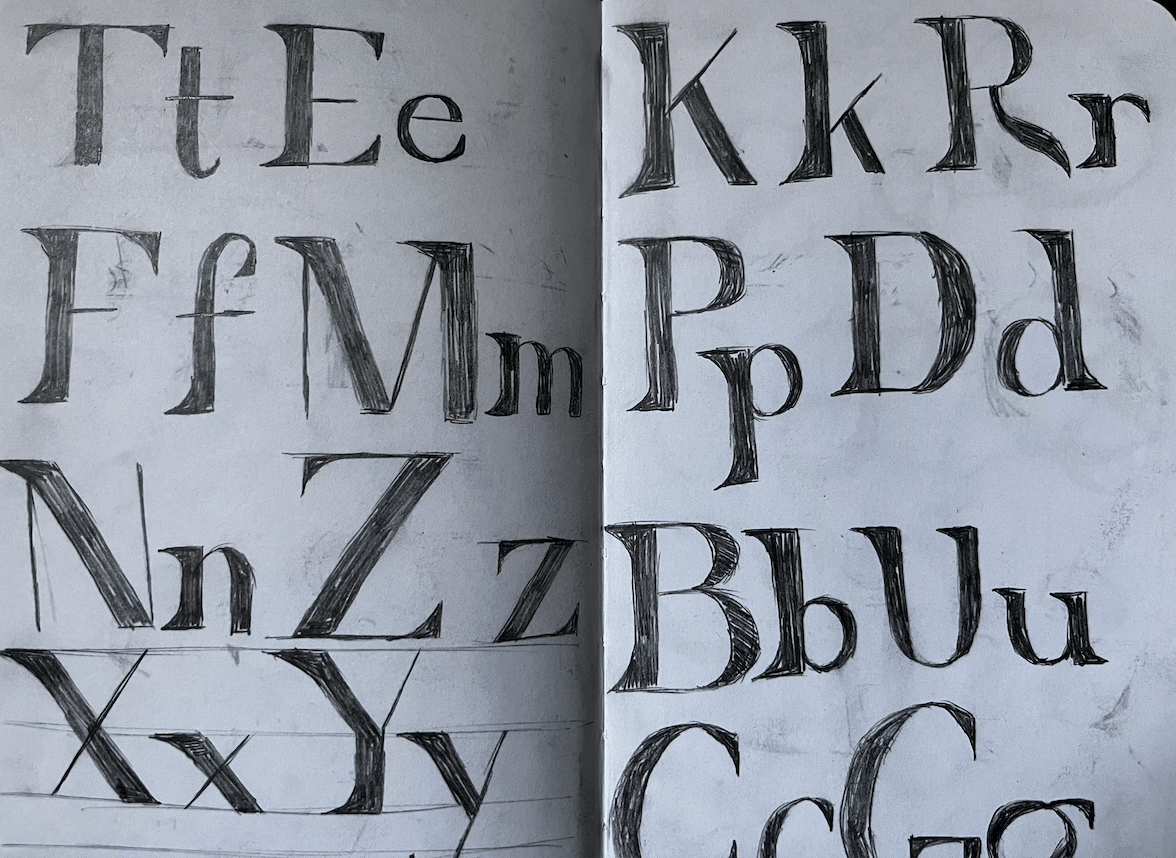 Tt Ee
Ff Mm
Nn Zz
Xx Yy
Kk Rr
Pp Dd
Bb Uu
Cc Gg